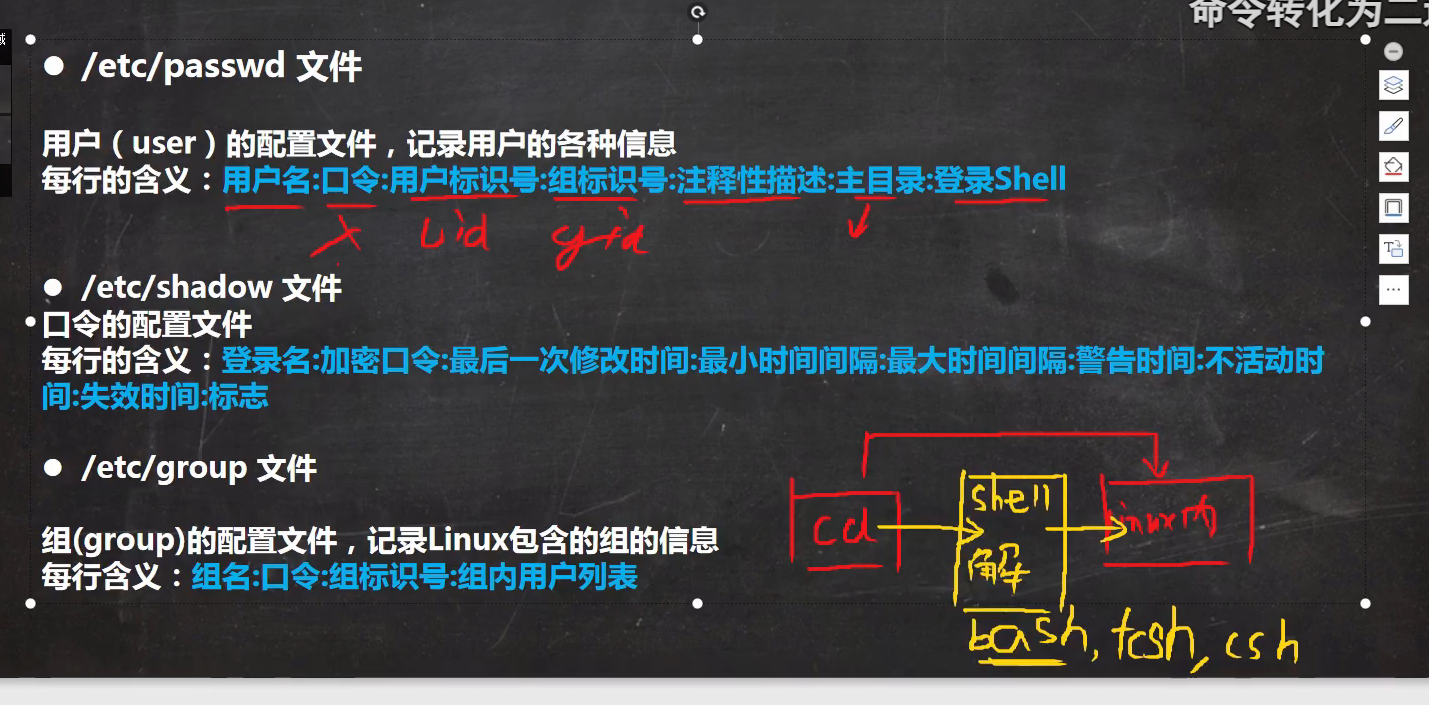 命令转化为二
● /etc/passwd 文件
用户（user）的配置文件，记录用户的各种信息
每行的含义：用户名:口令:用户标识号:组标识号:注释性描述:主目录:登录Shell
x uid gid
● /etc/shadow 文件
口令的配置文件
每行的含义：登录名:加密口令:最后一次修改时间:最小时间间隔:最大时间间隔:警告时间:不活动时
间:失效时间:标志
● /etc/group 文件
组(group)的配置文件，记录Linux包含的组的信息
每行含义：组名:口令:组标识号:组内用户列表
cd
shell
解
linux内
bash, tcsh, csh